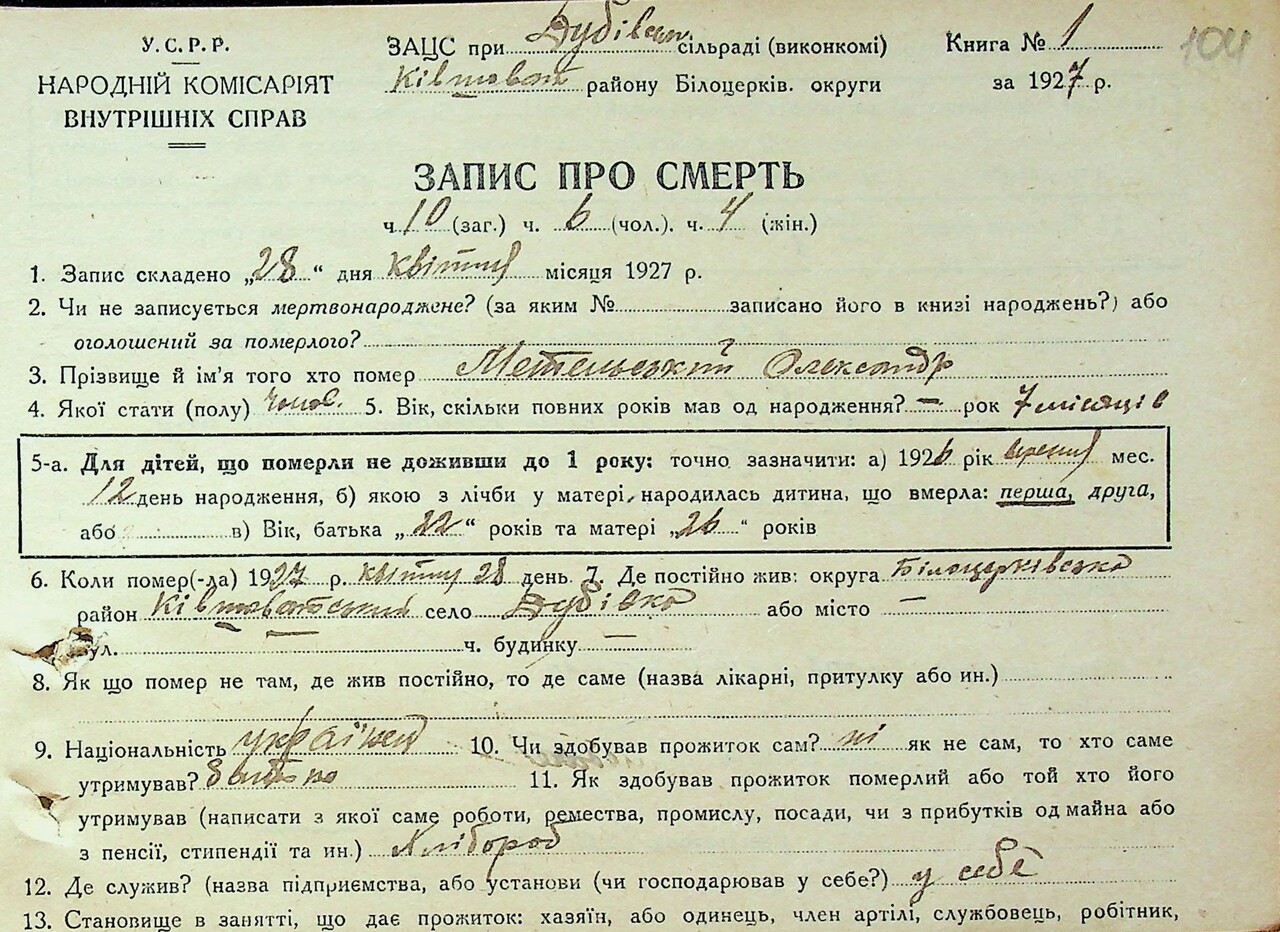 У.С.Р.Р.
НАРОДНІЙ КОМІСАРІЯТ
ВНУТРІШНІХ СПРАВ
ЗАЦС при Дубівськ. сільраді (виконкомі)
Ківшоват район​у Білоцерків. округи
Книга № 1
за 1927 р.
104
ЗАПИС ПРО СМЕРТЬ
ч. 10 (заг.) ч. 6 (чол.). ч. 4 (жін.)
1. Запис складено „28“ дня квітня місяця 1927 р.
2. Чи не записується мертвонароджене? (за яким № записано його в книзі народжень?) або
оголошений за померлого?
3. Прізвище й ім'я того хто помер Метельський Олександр
4. Якої стати (полу) чолов. 5. Вік, скільки повних років мав од народження? — рок 7 місяців
5-а. Для дітей, що померли не доживши до 1 року: точно зазначити: а) 1926 рік вересня мес.
12 день народження, б) якою з лічби у матері, народилась дитина, що вмерла: перша, друга,
або в) Вік, батька „22“ років та матері „26“ років
6. Коли помер(-ла) 1927 р. квітня 28 день 7. Де постійно жив: округа Білоцерківська
район Ківшоватський село Дубівка або місто —
вул. — ч. будинку —
8. Як що помер не там, де жив постійно, то де саме (назва лікарні, притулку або ин.)
9. Національність українец 10. Чи здобував прожиток сам? ні як не сам, то хто саме
утримував? батько 11. Як здобував прожиток померлий або той хто його
утримував (написати з якої саме роботи, ремества, промислу, посади, чи з прибутків од майна або
з пенсії, стипендії та ин.) Хлібороб
12. Де служив? (назва підприємства, або установи (чи господарював у себе?) у себе
13. Становище в занятті, що дає прожиток: хазяїн, або одинець, член артілі, службовець, робітник,